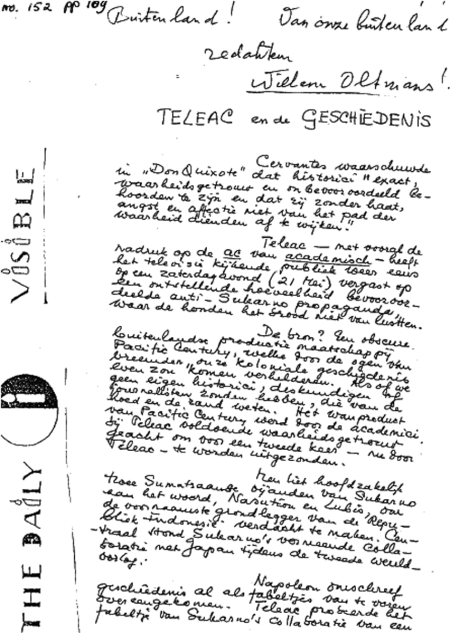 no. 152 pp 109
Buitenland! Van onze buitenland
redakteur
Willem Oltmans!
TELEAC en de GESCHIEDENIS
Cervantes waarschuwde
in „Don Quixote" dat historici "exact,
waarheidsgetrouw en onbevooroordeeld be-
hoorden te zijn en dat zij zonder haat,
angst en affectie niet van het pad der
waarheid dienden af te wijken."
Teleac — met vooral de
nadruk op de ac van academisch — heeft
het televisie kijkende publiek weer eens
op een zaterdagavond (21 Mei) vergast op
een ontstellende hoeveelheid bevooroor-
deelde anti-Sukarno propaganda,
waar de honden het brood niet van lustten.
De bron? Een obscure
buitenlandse productie maatschappij
Pacific Century, welke voor de ogen van
breeduit onze koloniale geschiedenis
even zou komen veranderen. Alsof we
geen eigen historici, deskundigen of
journalisten zouden hebben, die van de
hoed en de rand weten. Hét wanproduct
van Pacific Century werd door de academici
bij Teleac voldoende waarheidsgetrouw
geacht om voor een tweede keer — nu door
Teleac — te worden uitgezonden.
Men liet hoofdzakelijk
twee Sumatraanse vijanden van Sukarno
aan het woord, Nasution en Lubis, om
de voornaamste grondlegger van de Repu-
bliek Indonesië verdacht te maken. Cen-
traal stond Sukarno's vermeende Colla-
boratie met Japan tijdens de tweede wereld-
oorlog.
Napoleon omschreef
geschiedenis al als fabeltjes van te voren
overeengekomen. Teleac probeerde het
fabeltje van Sukarno's Collaboratie van een
THE DAILY i VISIBLE